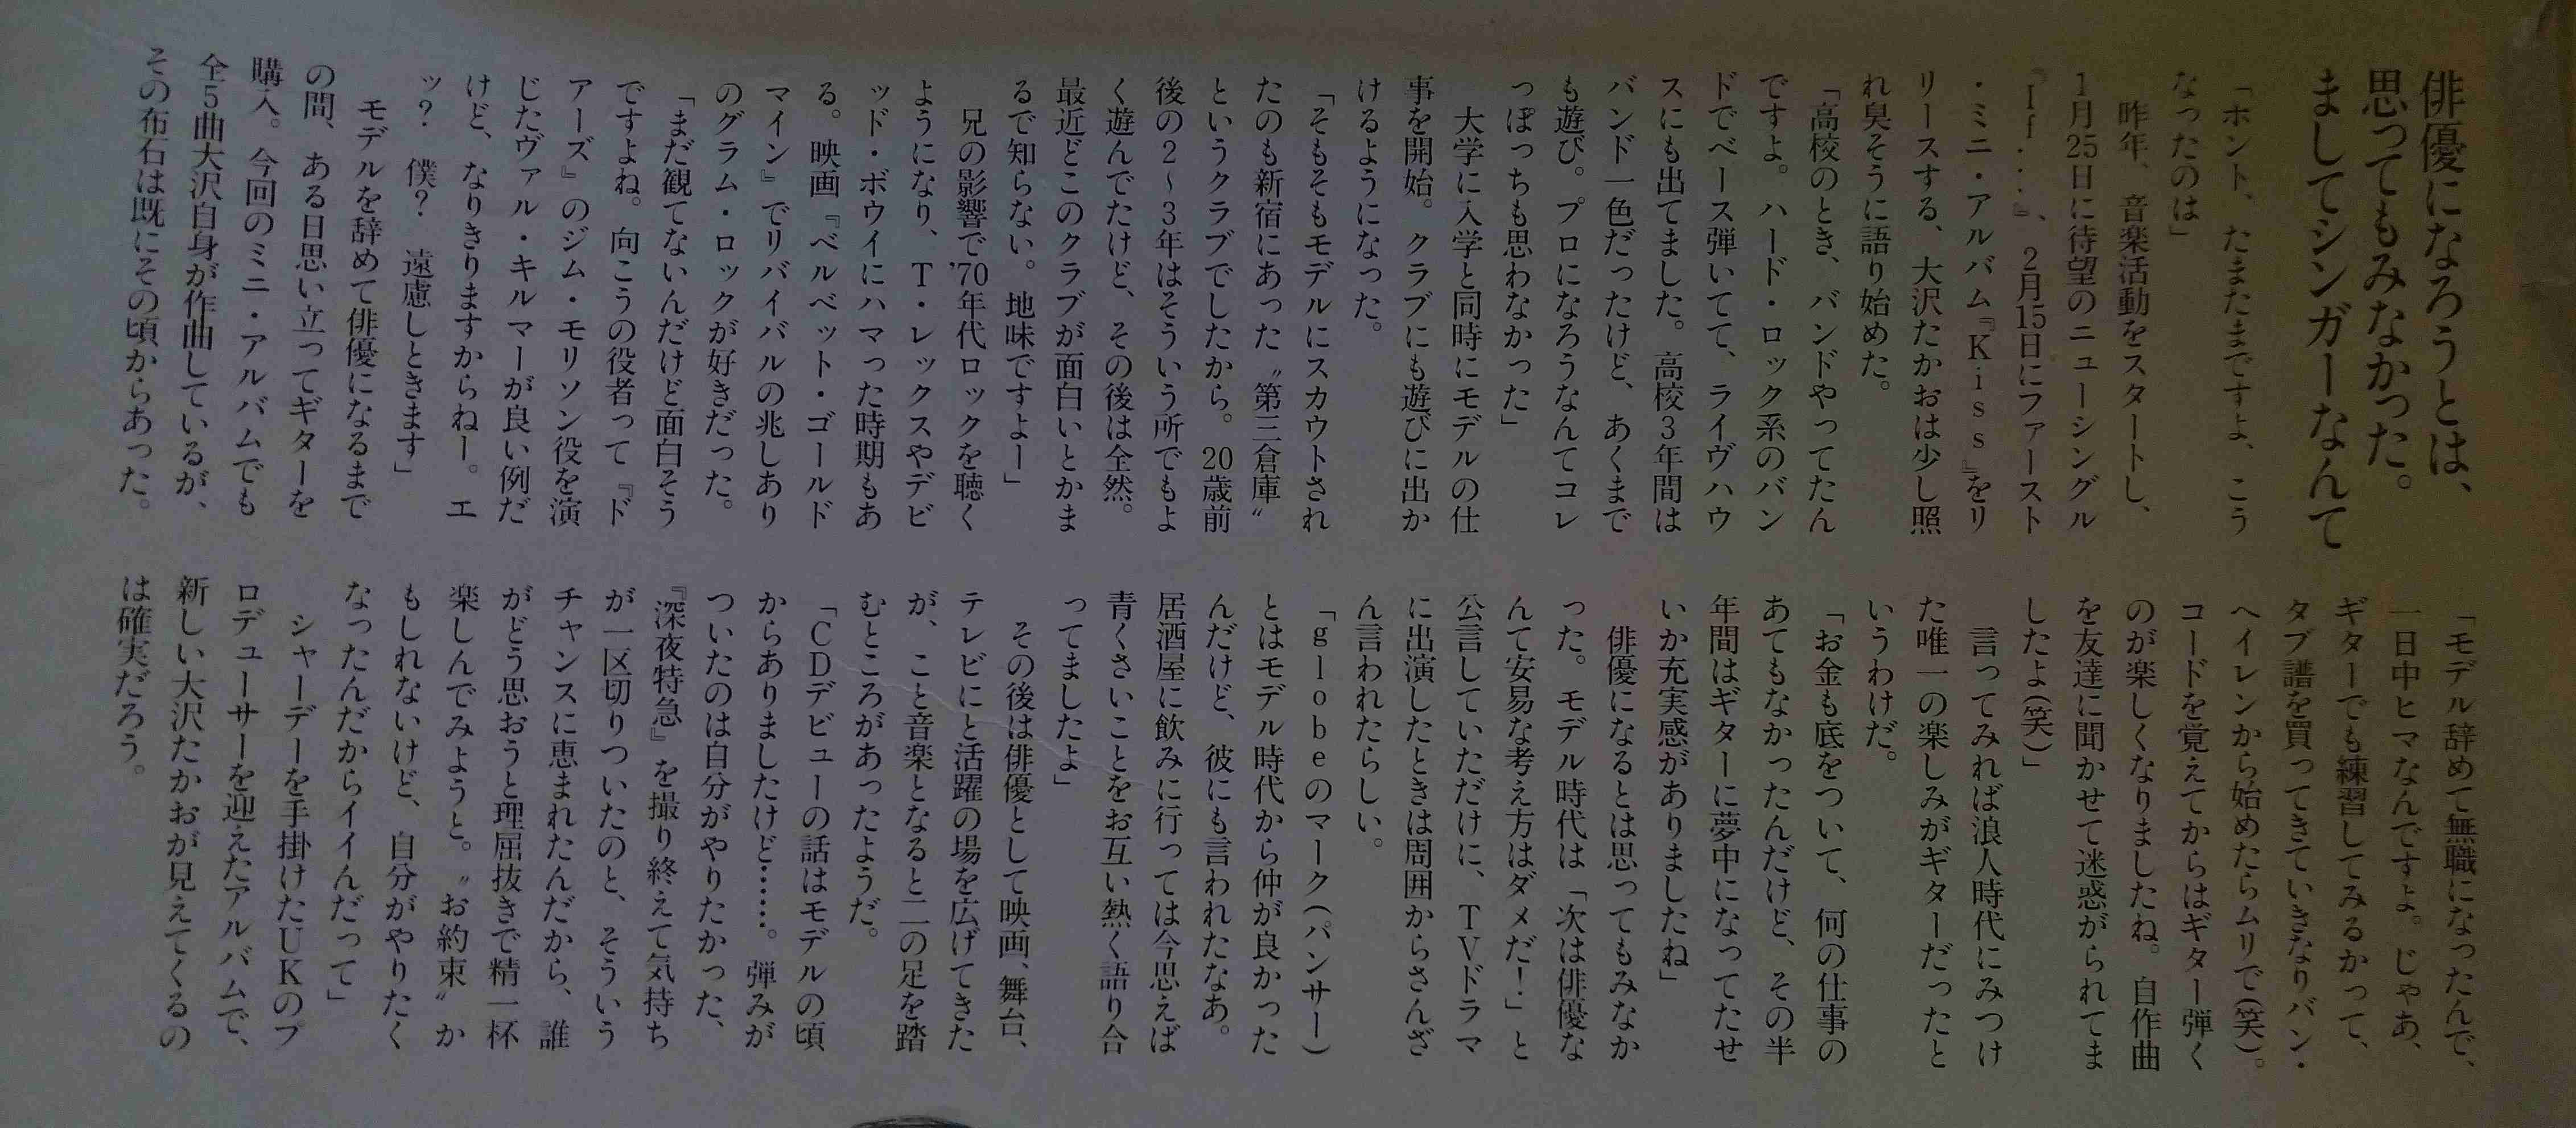 俳優になろうとは、
思ってもみなかった。
ましてシンガーなんて
「ホント、たまたまですよ、こう
なったのは」
　昨年、音楽活動をスタートし、
1月25日に待望のニューシングル
『If…』、2月15日にファースト
・ミニ・アルバム『Kiss』をリ
リースする、大沢たかおは少し照
れ臭そうに語り始めた。
「高校のとき、バンドやってたん
ですよ。ハード・ロック系のバン
ドでベース弾いてて、ライヴハウ
スにも出てました。高校3年間は
バンド一色だったけど、あくまで
も遊び。プロになろうなんてコレ
っぽっちも思わなかった」
　大学に入学と同時にモデルの仕
事を開始。クラブにも遊びに出か
けるようになった。
「そもそもモデルにスカウトされ
たのも新宿にあった〝第三倉庫〟
というクラブでしたから。20歳前
後の2〜3年はそういう所でもよ
く遊んでたけど、その後は全然。
最近どこのクラブが面白いとかま
るで知らない。地味ですよー」
　兄の影響で'70年代ロックを聴く
ようになり、T・レックスやデビ
ッド・ボウイにハマった時期もあ
る。映画『ベルベット・ゴールド
マイン』でリバイバルの兆しあり
のグラム・ロックが好きだった。
「まだ観てないんだけど面白そう
ですよね。向こうの役者って『ド
アーズ』のジム・モリソン役を演
じたヴァル・キルマーが良い例だ
けど、なりきりますからねー。エ
ッ？　僕？　遠慮しときます」
　モデルを辞めて俳優になるまで
の間、ある日思い立ってギターを
購入。今回のミニ・アルバムでも
全5曲大沢自身が作曲しているが、
その布石は既にその頃からあった。
「モデル辞めて無職になったんで、
一日中ヒマなんですよ。じゃあ、
ギターでも練習してみるかって、
タブ譜を買ってきていきなりバン・
ヘイレンから始めたらムリで（笑）。
コードを覚えてからはギター弾く
のが楽しくなりましたね。自作曲
を友達に聞かせて迷惑がられてま
したよ（笑）」
　言ってみれば浪人時代にみつけ
た唯一の楽しみがギターだったと
いうわけだ。
「お金も底をついて、何の仕事の
あてもなかったんだけど、その半
年間はギターに夢中になってたせ
いか充実感がありましたね」
　俳優になるとは思ってもみなか
った。モデル時代は「次は俳優な
んて安易な考え方はダメだ！」と
公言していただけに、TVドラマ
に出演したときは周囲からさんざ
ん言われたらしい。
「globeのマーク（パンサー）
とはモデル時代から仲が良かった
んだけど、彼にも言われたなあ。
居酒屋に飲みに行っては今思えば
青くさいことをお互い熱く語り合
ってましたよ」
　その後は俳優として映画、舞台、
テレビにと活躍の場を広げてきた
が、こと音楽となると二の足を踏
むところがあったようだ。
「CDデビューの話はモデルの頃
からありましたけど……。弾みが
ついたのは自分がやりたかった、
『深夜特急』を撮り終えて気持ち
が一区切りついたのと、そういう
チャンスに恵まれたんだから、誰
がどう思おうと理屈抜きで精一杯
楽しんでみようと。〝お約束〟か
もしれないけど、自分がやりたく
なったんだからイイんだって」
　シャーデーを手掛けたUKのプ
ロデューサーを迎えたアルバムで、
新しい大沢たかおが見えてくるの
は確実だろう。